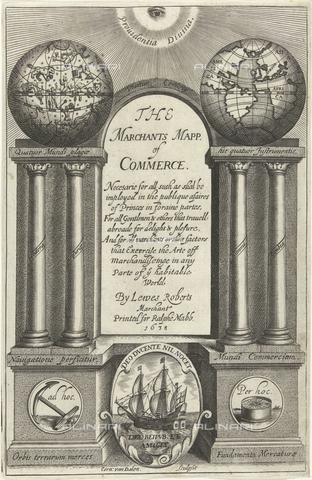 Providentia Divina.
THE
MARCHANTS MAPP.
of
COMMERCE.
Necessarie for all such as shal be
imployed in the publique afaires
of Princes in foraine partes,
For all Gentlmen & others that travell
abroade for delight & plesure,
And for all marchants or their factors
that Exercise the Arte off
marchandiseinge in any
Parte of ye habitable
World.
By Lewes Roberts
Marchant
Printed for Ralphe Mabb.
1638
Quatuor Mundi plagæ
his quatuor Instrumentis
Navigatione perficitur
Mundi Commercium.
ad hoc.
DEO DVCENTE NIL NOCET
Per hoc.
Orbis terrarum merces
Fundamenta Mercaturæ
Corn: van Dalen
Sculpsit
ALINARI
ALINARI